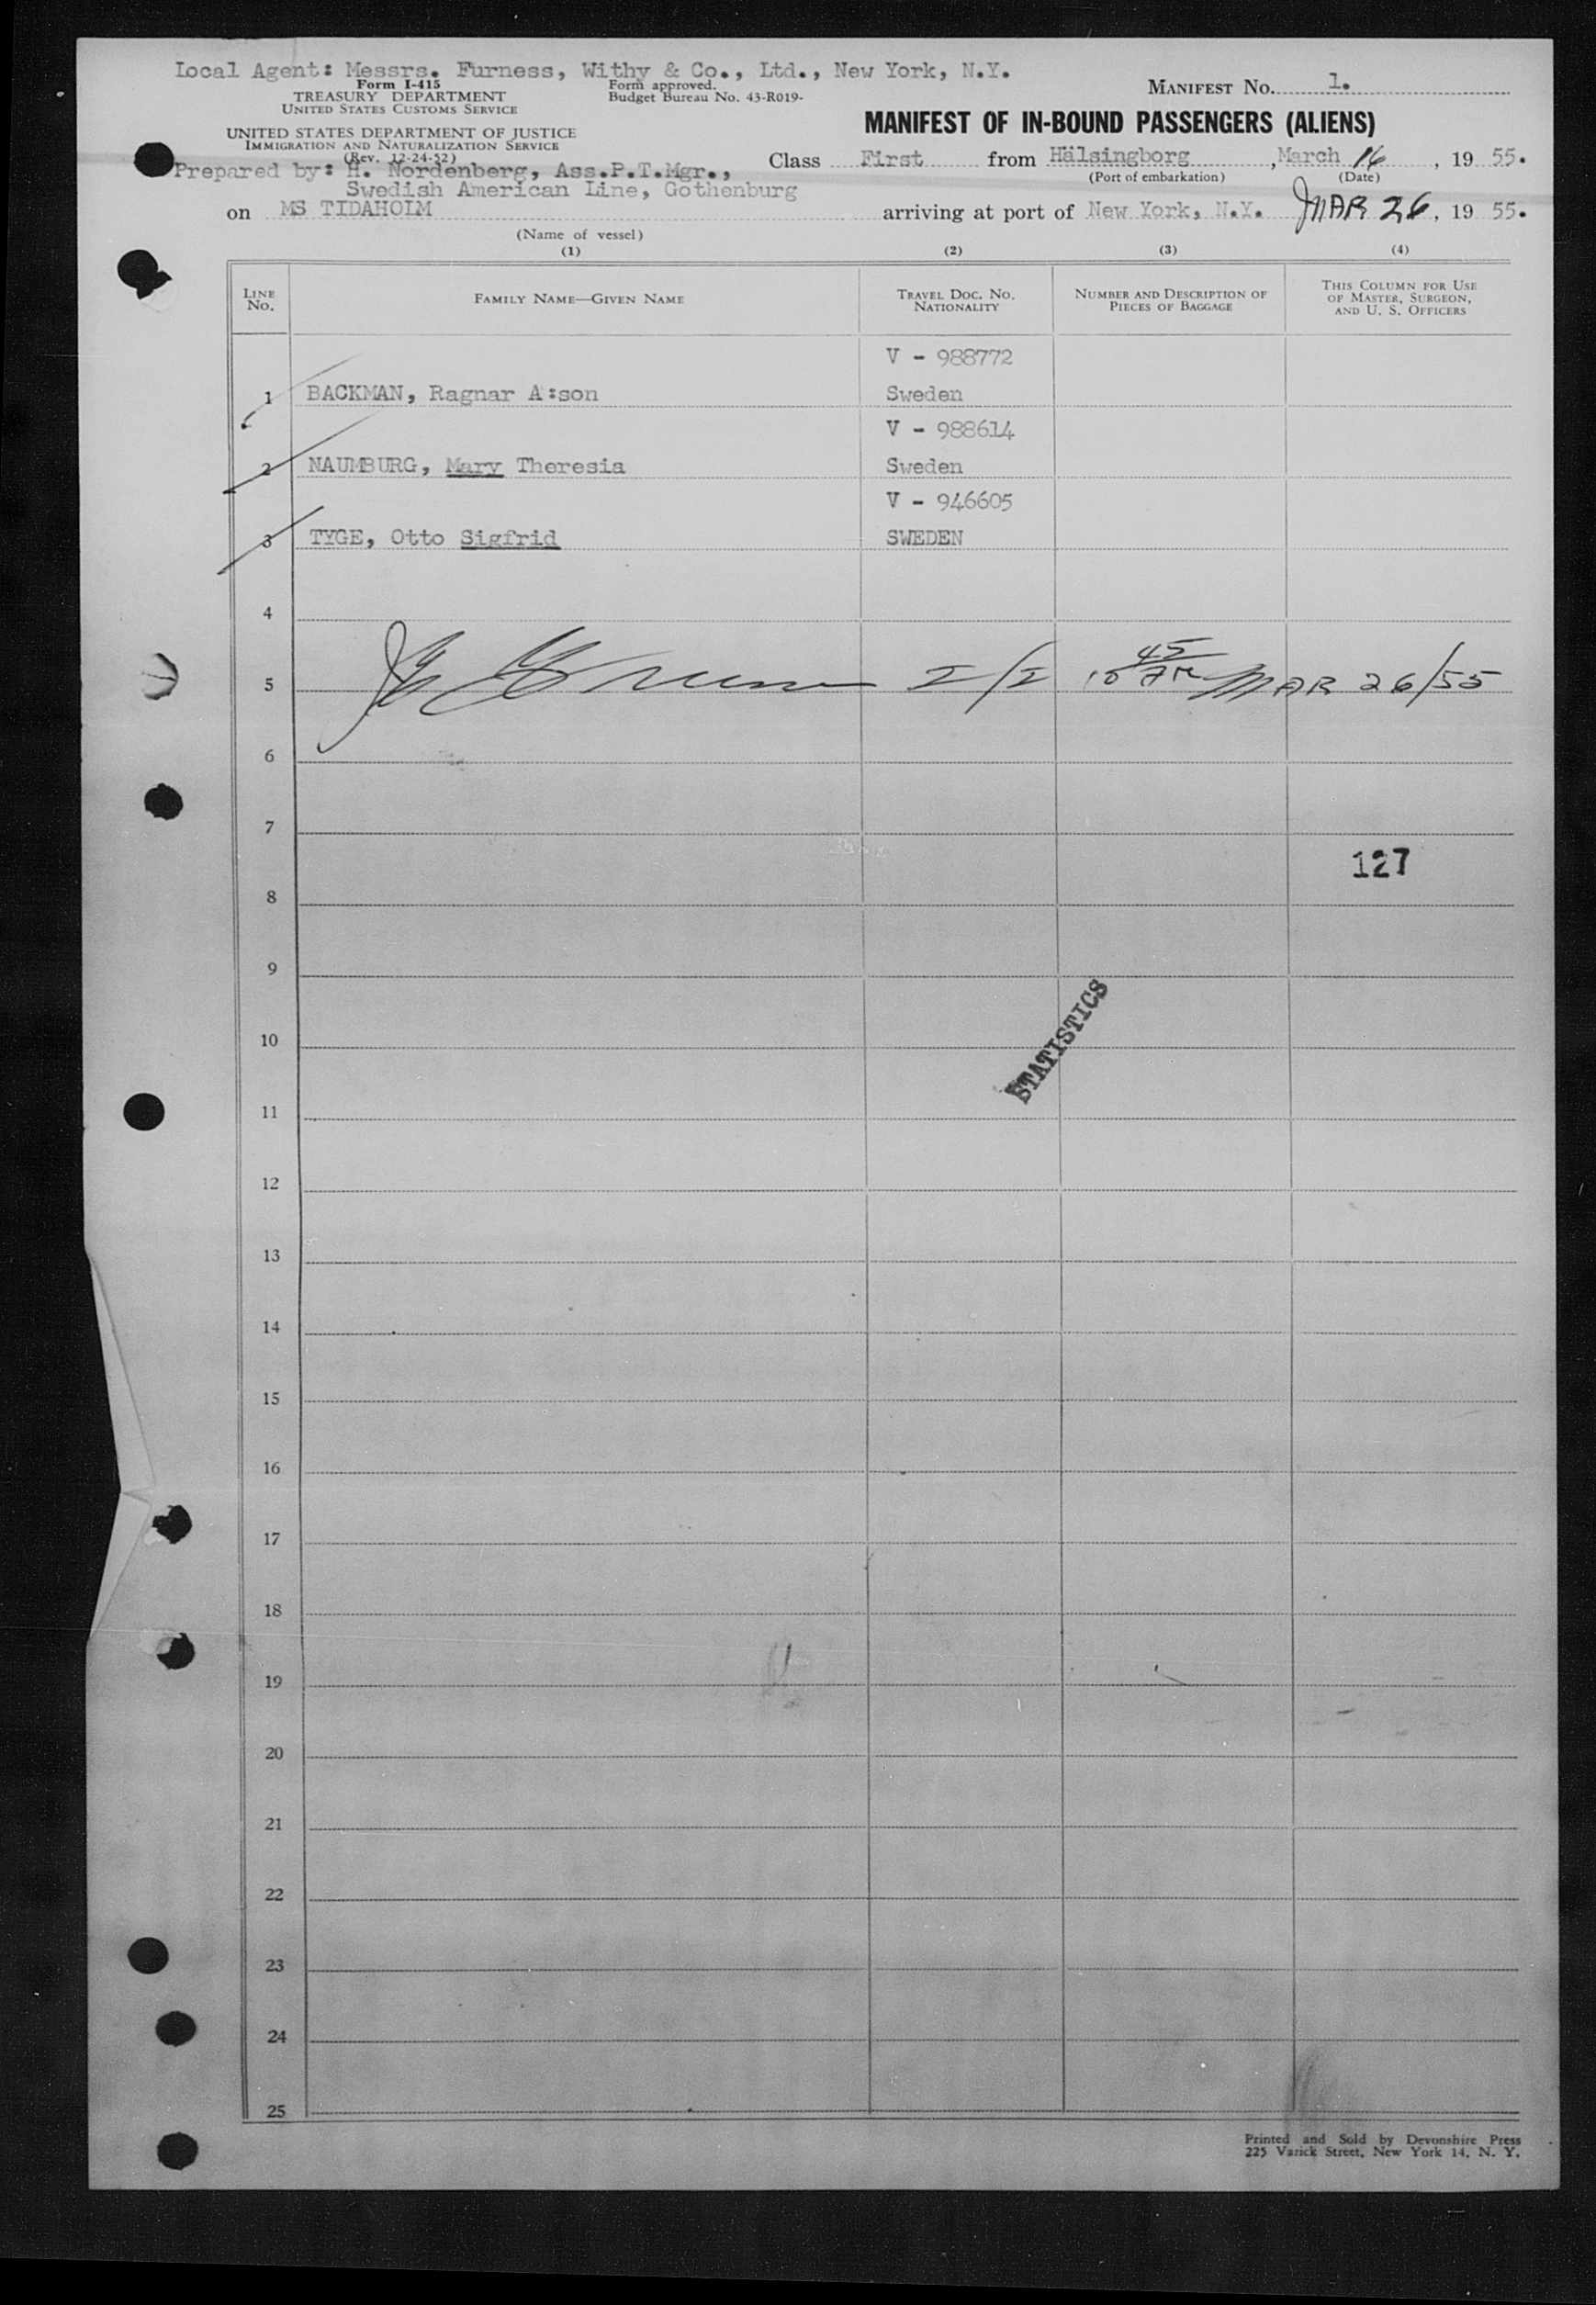 Local Agent: Messrs. Furness, Withy & Co., Ltd., New York, N.Y.
Form I-415
TREASURY DEPARTMENT
UNITED STATES CUSTOMS SERVICE
Form approved.
Budget Bureau No. 43-R019-
MANIFEST No. 1.
UNITED STATES DEPARTMENT OF JUSTICE
IMMIGRATION AND NATURALIZATION SERVICE
(Rev. 12-24-52)
MANIFEST OF IN-BOUND PASSENGERS (ALIENS)
Prepared by: H. Nordenberg, Ass.P.T.Mgr.,
Swedish American Line, Gothenburg
Class First from Hälsingborg, March 16, 1955.
(Port of embarkation) (Date)
on MS TIDAHOLM arriving at port of New York, N.Y. MAR 26, 1955.
(Name of vessel)
(1) (2) (3) (4)
LINE No. FAMILY NAME—GIVEN NAME TRAVEL DOC. No. NATIONALITY NUMBER AND DESCRIPTION OF PIECES OF BAGGAGE THIS COLUMN FOR USE OF MASTER, SURGEON, AND U. S. OFFICERS
V - 988772
1 BACKMAN, Ragnar A:son Sweden
V - 988614
2 NAUMBURG, Mary Theresia Sweden
V - 946605
3 TYGE, Otto Sigfrid SWEDEN
4
5 I/I 10 45 AM MAR 26/55
6
7
127
8
9
STATISTICS
10
11
12
13
14
15
16
17
18
19
20
21
22
23
24
25
Printed and Sold by Devonshire Press
225 Varick Street, New York 14, N. Y.